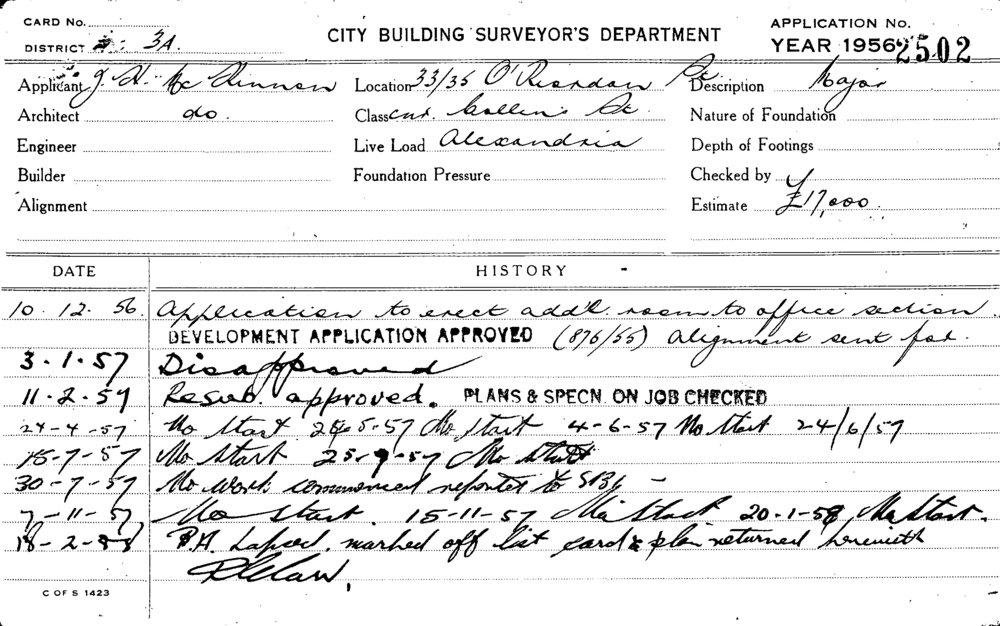 CARD No.
DISTRICT 3A.
CITY BUILDING SURVEYOR'S DEPARTMENT
APPLICATION No.
YEAR 1956 2502
Applicant J. H. McKinnon Location 33/35 O'Riordan St Description Major
Architect do. Class cnr. Collins St. Nature of Foundation
Engineer Live Load Alexandria Depth of Footings
Builder Foundation Pressure Checked by
Alignment Estimate £17,000.
DATE HISTORY
10.12.56. Application to erect add'l. room to office section.
DEVELOPMENT APPLICATION APPROVED (876/55) Alignment sent for.
3.1.57 Disapproved
11.2.57 Resub. approved. PLANS & SPECN. ON JOB CHECKED
24-4-57 No Start 5-57 No Start 4-6-57 No Start 24/6/57
15-7-57 No Start 25-9-57 No Start
30-7-57 No work commenced reported to
7-11-57 No Start. 15-11-57 No Start 20-1-58 No Start.
18-2-58 B.A. Lapsed. marked off list card & plan returned herewith
C OF S 1423